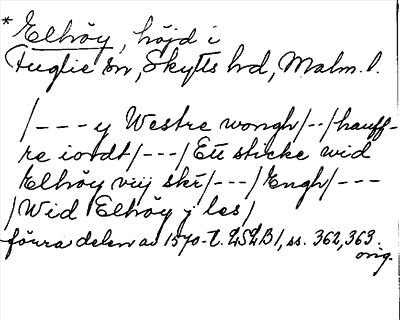 * Elhöy, höjd i
Fuglie sn, Skytts hd, Malm. l.
/--- y Westre wongh/--/hauff-
re iordt/---/Ett sticke wid
Elhöy viij ski/---/Engh/---
/Wid Elhöy j les/
förra delen av 1570-t. LSLB1, ss. 362, 363.
orig.